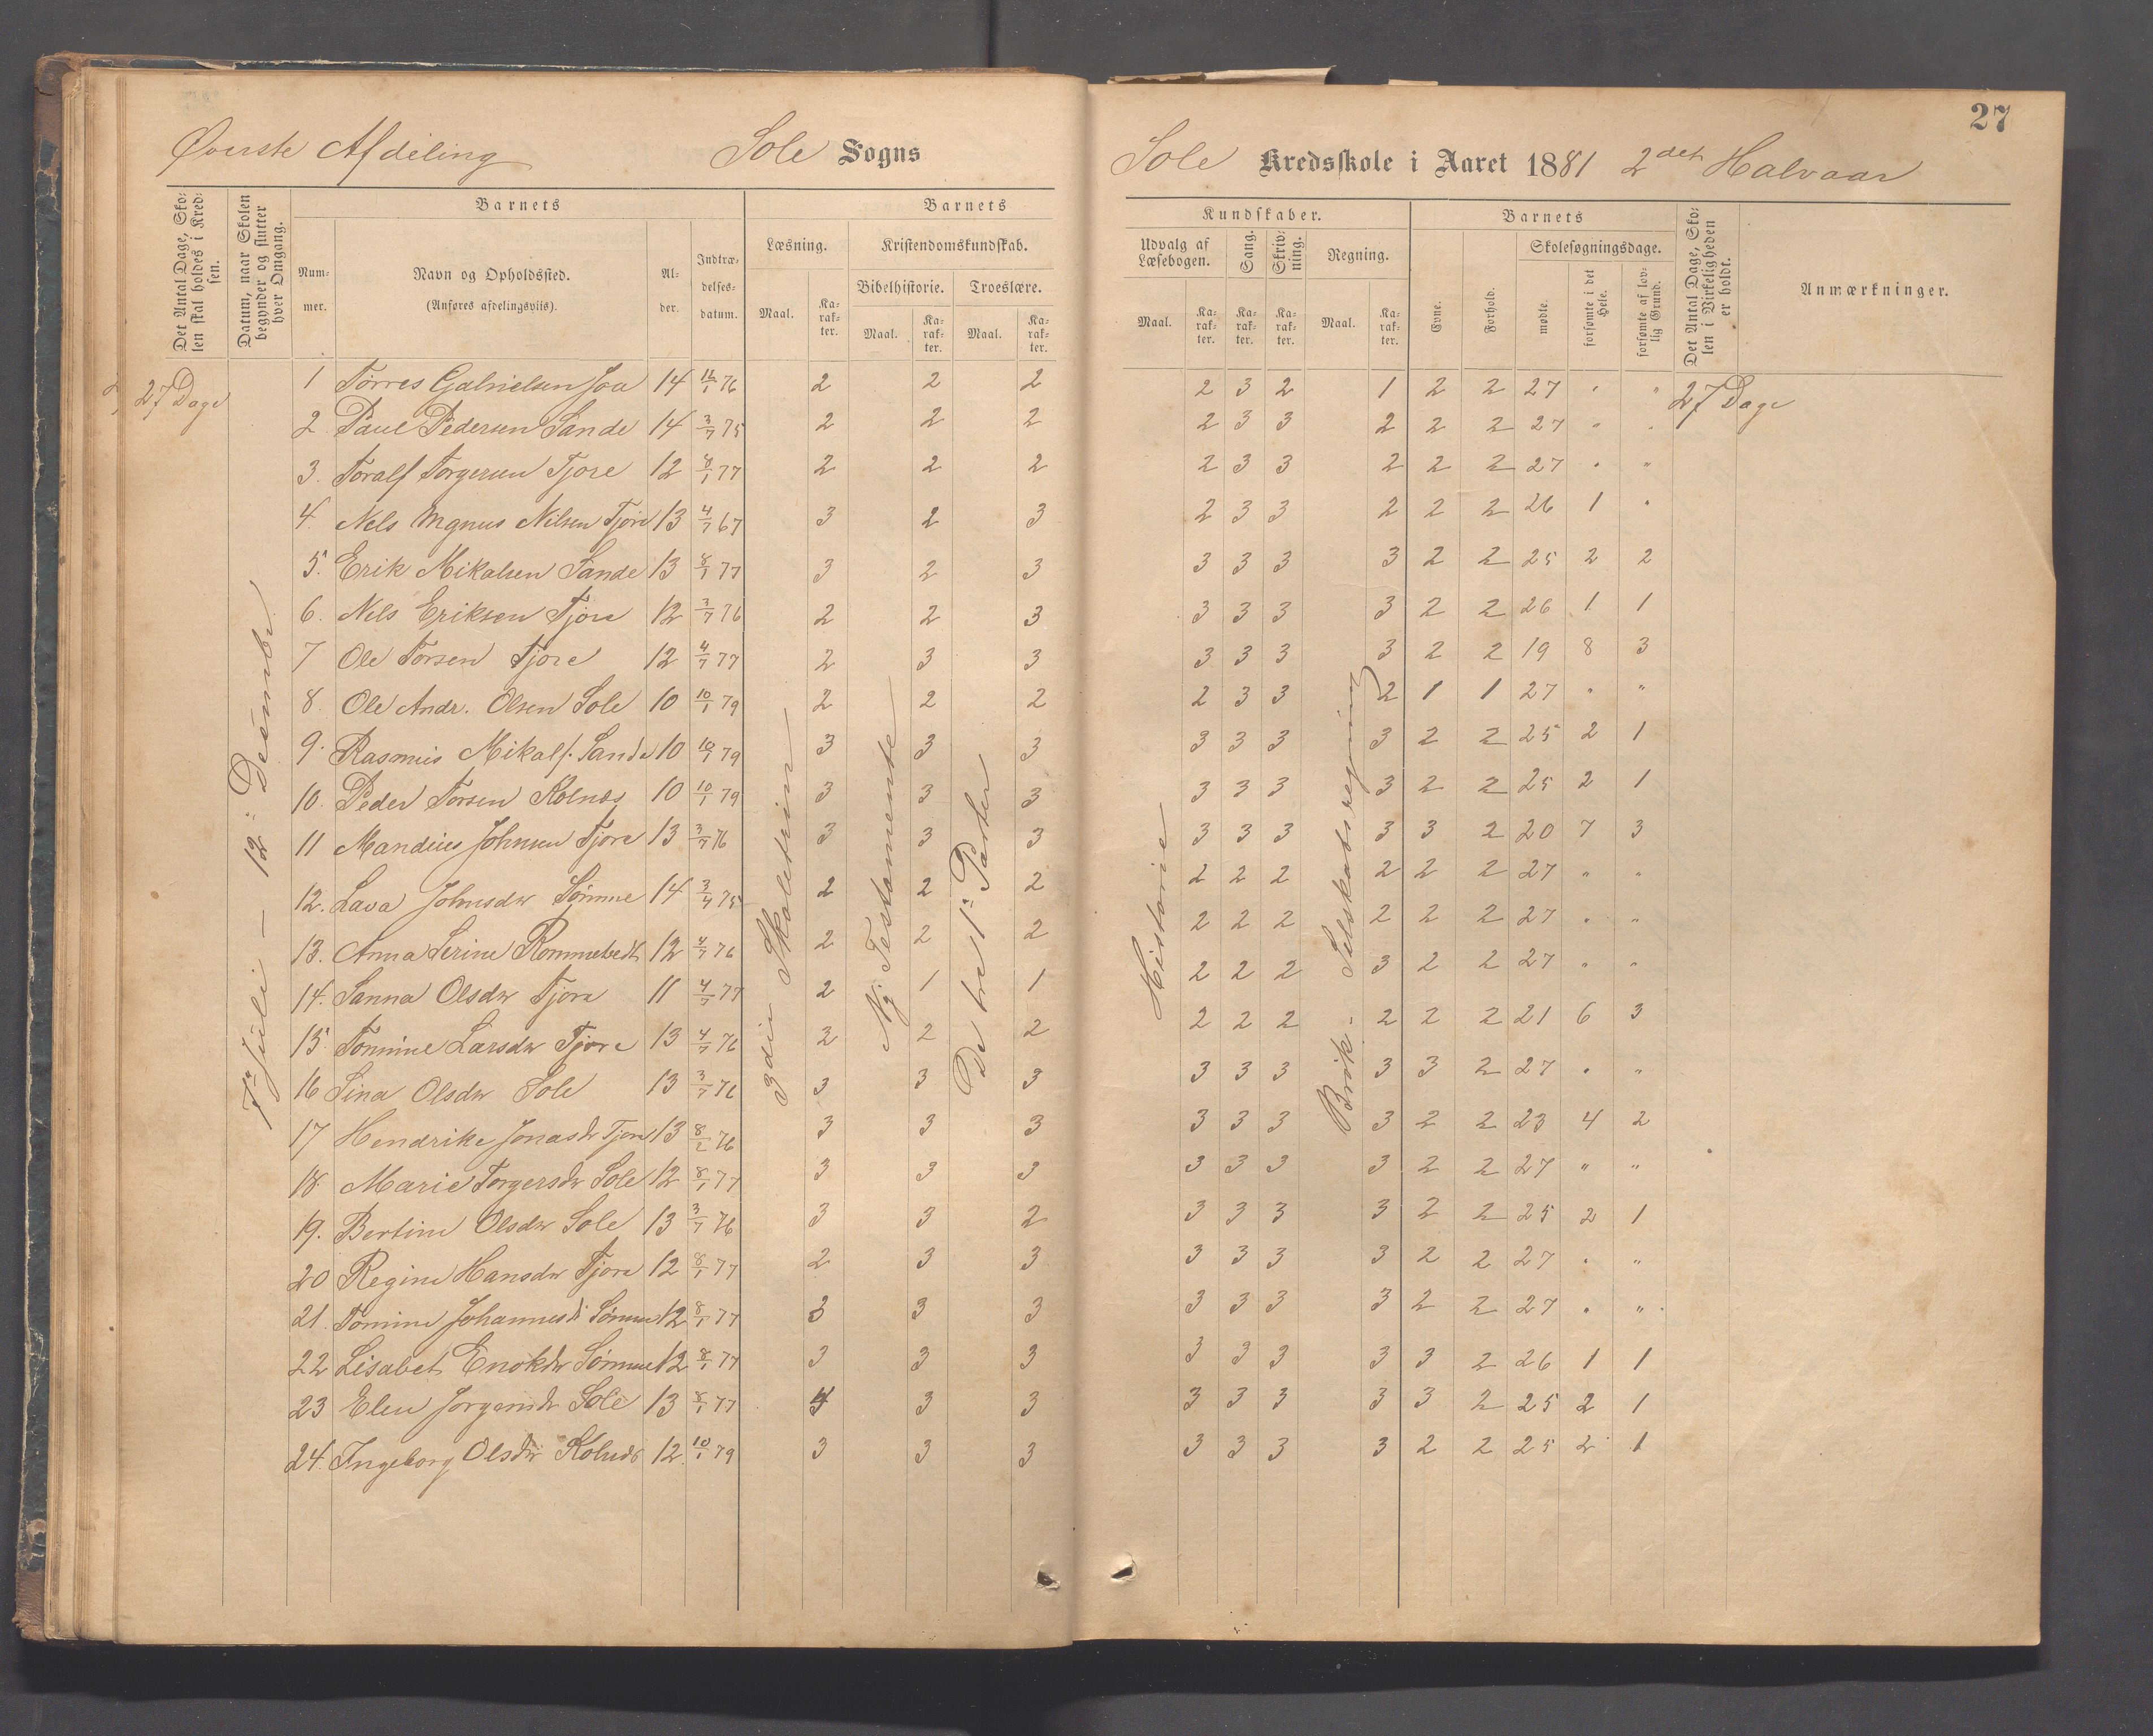 27
Øverste Afdeling Sole Sogns
Sole Kredsskole i Aaret 1881 2det Halvaar
Det Antal Dage, Skolen skal holdes i Kredsen.
Datum, naar Skolen begynder og slutter hver Omgang.
Barnets
Nummer.
Navn og Opholdssted.
(Anføres afdelingsviis).
Alder.
Indtrædelsesdatum.
Barnets
Læsning.
Maal.
Karakter.
Kristendomskundskab.
Bibelhistorie.
Maal.
Karakter.
Troeslære.
Maal.
Karakter.
Kundskaber.
Udvalg af Læsebogen.
Maal.
Karakter.
Sang.
Karakter.
Skrivning.
Karakter.
Regning.
Maal.
Karakter.
Barnets
Evne.
Forhold.
Skolesøgningsdage.
mødte.
forsømte i det Hele.
forsømte af lovlig Grund.
Det Antal Dage, Skolen i Virkeligheden er holdt.
Anmærkninger.
27 Dage
7de Juli — 12: Desember
3die Skoletrin
Ny Testamente
De tre 1ste Parter
Historie
Brøk- Selskabsregning
1 Torres Gabrielsen Joa 14 12/1 76 2 2 2 2 3 2 1 2 2 27 " " 27 Dage
2 Paul Pedersen Sande 14 3/7 75 2 2 2 2 3 3 2 2 2 27 " "
3. Toralf Torgersen Tjore 12 8/1 77 2 2 2 2 3 3 2 2 2 27 " "
4. Nels Mgnus Nilsen Tjore 13 4/7 67 3 2 3 2 3 3 2 2 2 26 1 "
5. Erik Mikalsen Sande 13 8/1 77 3 2 3 3 3 3 3 2 2 25 2 2
6. Nels Eriksen Tjore 12 3/7 76 2 2 3 3 3 3 3 2 2 26 1 1
7 Ole Torsen Tjore 12 4/7 77 2 3 3 3 3 3 3 2 2 19 8 3
8 Ole Andr. Olsen Sole 10 10/1 79 2 2 2 2 3 3 2 1 1 27 " "
9. Rasmus Mikals. Sande 10 10/1 79 3 3 3 3 3 3 3 2 2 25 2 1
10. Peder Torsen Kolnes 10 10/1 79 3 3 3 3 3 3 3 2 2 25 2 1
11 Mandius Johnsen Tjore 13 3/7 76 3 3 3 3 3 3 3 3 2 20 7 3
12. Lava Johnsdr Sømme 14 3/7 75 2 2 2 2 2 2 2 2 2 27 " "
13. Anna Serine Rommetvedt 12 4/7 76 2 2 2 2 2 2 2 2 2 27 " "
14. Sanna Olsdr Tjora 11 4/7 77 2 1 1 2 2 2 3 2 2 27 " "
15. Tomine Larsdr Tjore 13 4/7 76 2 2 2 2 2 2 2 2 2 21 6 3
16 Sina Olsdr Sole 13 3/7 76 3 3 3 3 3 3 3 3 2 27 " "
17 Hendrike Jonasdr Tjore 13 8/2 76 3 3 3 3 3 3 3 2 2 23 4 2
18. Marie Torgersdr Sole 12 8/1 77 3 3 3 3 3 3 3 2 2 27 " "
19. Bertine Olsdr Sole 13 3/7 76 3 3 2 3 3 3 3 2 2 25 2 1
20 Regine Hansdr Tjora 12 8/1 77 2 3 3 3 3 3 3 2 2 27 " "
21. Tomine Johannesdr Sømme 12 8/1 77 3 3 3 3 3 3 3 2 2 27 " "
22 Lisabet Enoksdr Sømme 12 8/1 77 3 3 3 3 3 3 3 3 2 26 1 1
23 Elen Jørgensdr Sole 13 8/1 77 4 3 3 3 3 3 3 3 2 25 2 1
24. Ingeborg Olsdr Kolnes 12 10/1 79 3 3 3 3 3 3 3 2 2 25 2 1